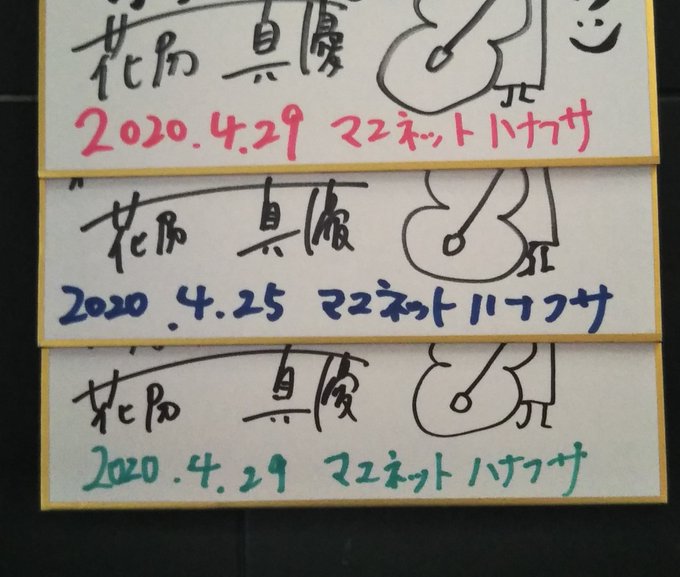 花陽 真優
2020.4.29 マユネット ハナフサ
花陽 真優
2020.4.25 マユネット ハナフサ
花陽 真優
2020.4.29 マユネット ハナフサ